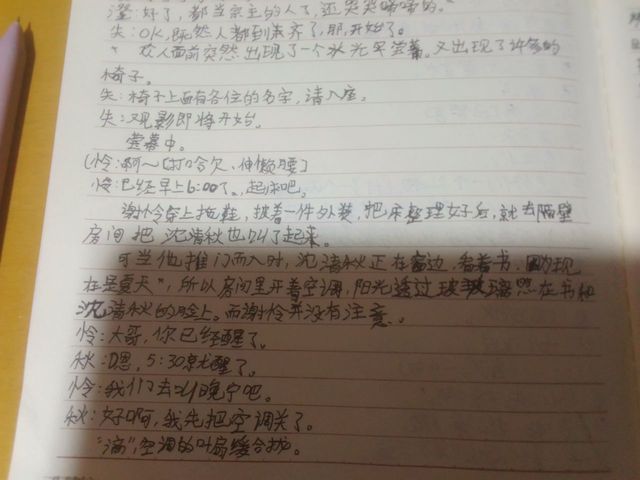 澄:好了,都当宗主的人了,还哭哭啼啼的。
失:OK,既然人都到来齐了,那,开始了。
众人面前突然出现了一个水光罕萤幕。又出现了许多的
椅子。
失:椅子上面有各位的名字,请入座。
失:观影即将开始。
萤幕中。
(怜:啊~[打哈欠、伸懒腰]
怜:已经早上6:00了。起床吧。
谢怜穿上拖鞋,披着一件外装,把床整理好后,就去隔壁
房间把沈清秋也叫了起来。
可当他推门而入时,沈清秋正在窗边,看着书.因为现
在是夏天",所以房间里开着空调,阳光透过玻璃照在书和
沈清秋的脸上。而谢怜并没有注意。
怜:大哥,你已经醒了。
秋:嗯,5:30就醒了。
怜:我们去叫晚宁吧。
秋:好啊,我先把空调关了。
"滴",空调的叶扇缓合拢。